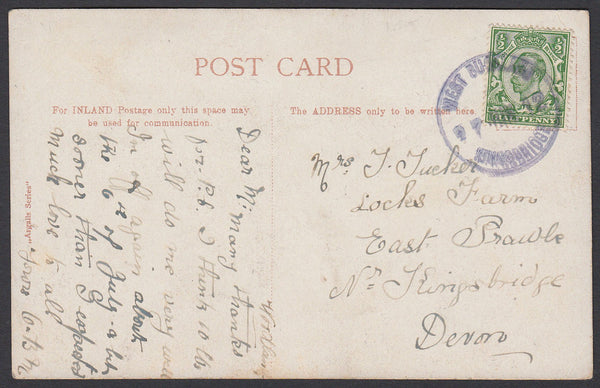 POST CARD
For INLAND Postage only this space may
be used for communication.
The ADDRESS only to be written here.
"Argalls Series"
Dear M. Many thanks
for P.C. I think 10 lbs
will do me very well
Im off again about
the 6 of July a bit
sooner than I expected
Much love to all
Yours
Mrs J. Tucker
Locks Farm
East Prawle
Nr Kingsbridge
Devon
WEST
KINGSBRIDGE
HALFPENNY
1/2
1/2